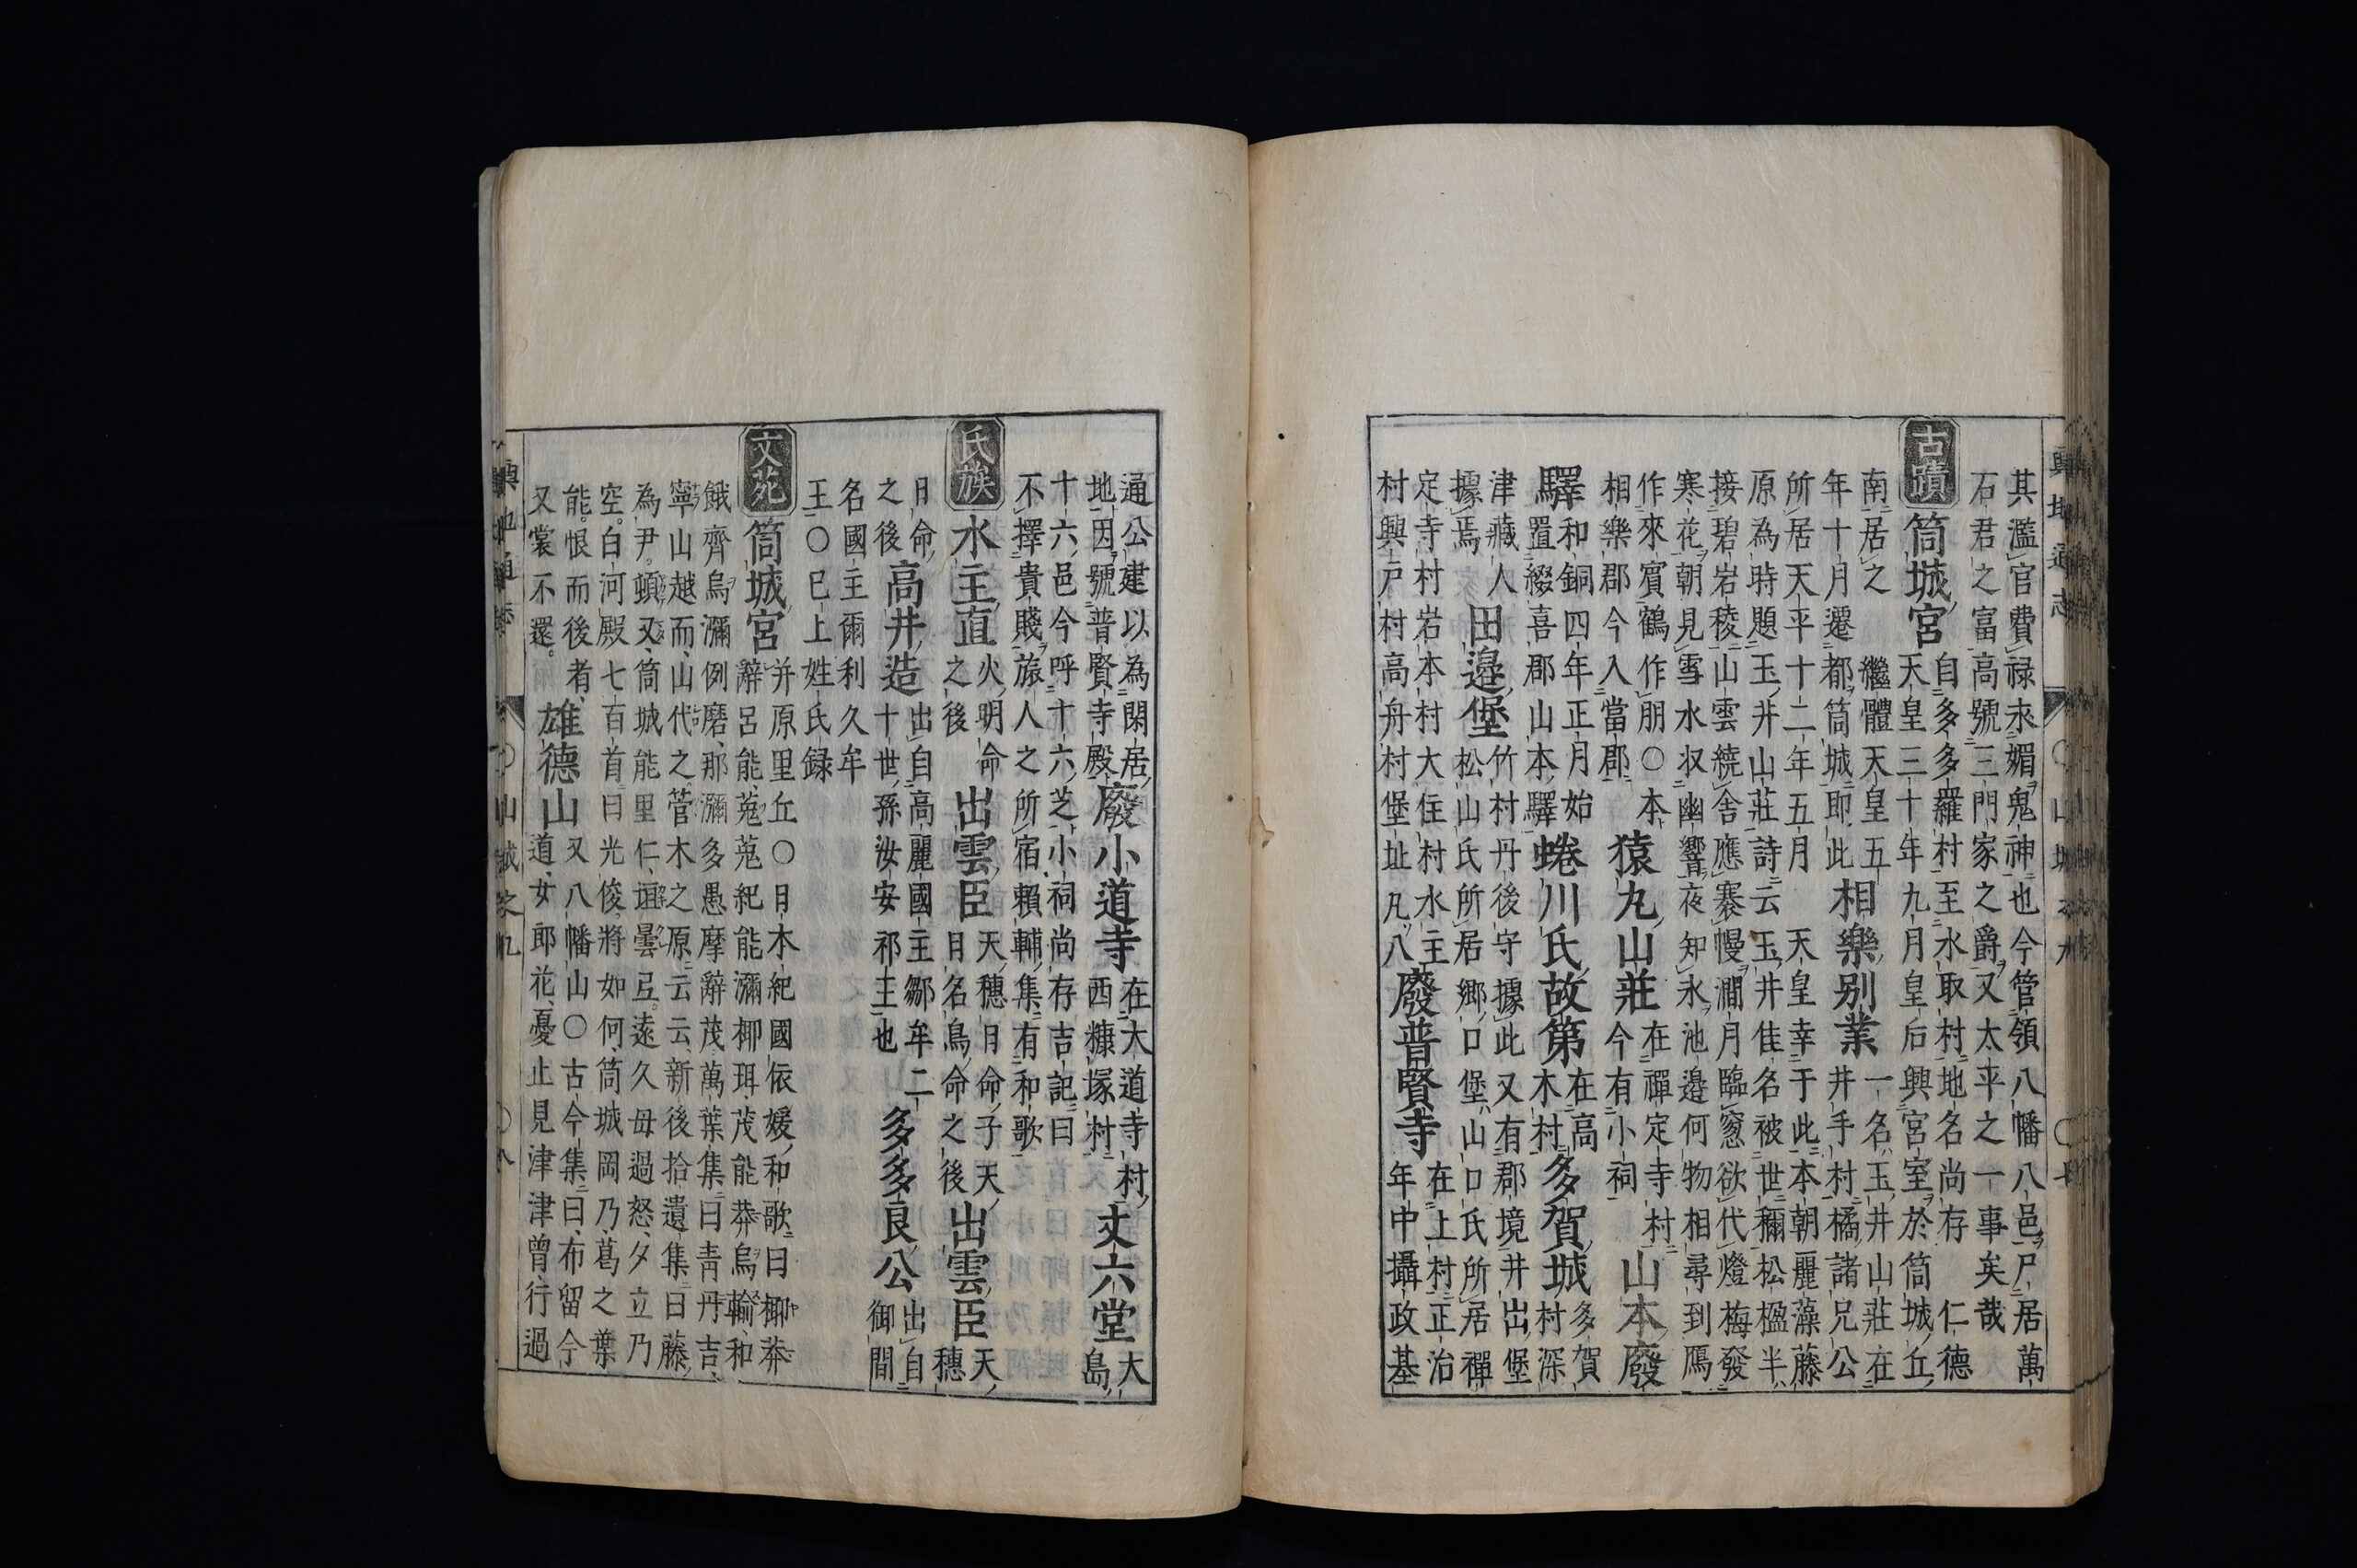 其濫官費祿永媚鬼神也今管領八幡八邑尸居萬
石君之富高號三門家之爵又太平之一事矣哉
古蹟 筒城宮 自多多羅村至水取村地名尚存 仁德
天皇三十年九月皇后興宮室於筒城丘
南居之 繼體天皇五
年十月遷都筒城即此 相樂別業 一名玉井山莊在
井手村橘諸兄公
所居天平十二年五月 天皇幸于此本朝麗藻藤
原為時題玉井山莊詩云 玉井佳名被世穪松楹半
接碧岩稜山雲繞舍應褰幔澗月臨窓欲代燈梅發
寒花朝見雪水収幽響夜知氷池邊何物相尋到鴈
作來賓鶴作朋〇本
相樂郡今入當郡 猿丸山莊 在禪定寺村
今有小祠 山本廢
驛 和銅四年正月始
置綴喜郡山本驛 蜷川氏故第 在高
木村 多賀城 多賀
村深
津藏人
據焉 田邉堡 竹村丹後守據此又有郡境井出堡
松山氏所居郷口堡山口氏所居禪
定寺村岩本村大住村水主
村興戸村高舟村堡址凡八 廢普賢寺 在上村正治
年中攝政基
通公建以為閑居
地因號普賢寺殿 廢小道寺 在大道寺村
西糠塚村 丈六堂 大
島
十六邑今呼十六芝小祠尚存吉記曰
不擇貴賤旅人之所宿頼輔集有和歌
氏族 水主直 火明命
之後 出雲臣 天穗日命子天
日名鳥命之後 出雲臣 天
穗
日命
之後 高井造 出自高麗國主鄒牟二
十世孫汝安祁王也 多多良公 出自
御間
名國主爾利久牟
王〇已上姓氏録
文苑 筒城宮 并原里丘〇日木紀國依媛和歌曰揶莽
辭呂能菟菟紀能瀰揶珥茂能莽烏輸和
餓齊烏瀰例磨那瀰多愚摩辭茂萬葉集曰青丹吉
寧山越而山代之管木之原云云新後拾遺集曰藤
為尹頓又筒城能里仁曇遠久母過怒夕立乃
空白河殿七百首曰光俊將如何筒城岡乃葛之葉
能恨而後者
又裳不還 雄德山 又八幡山〇古今集曰布留今
道女郎花憂止見津津曾行過